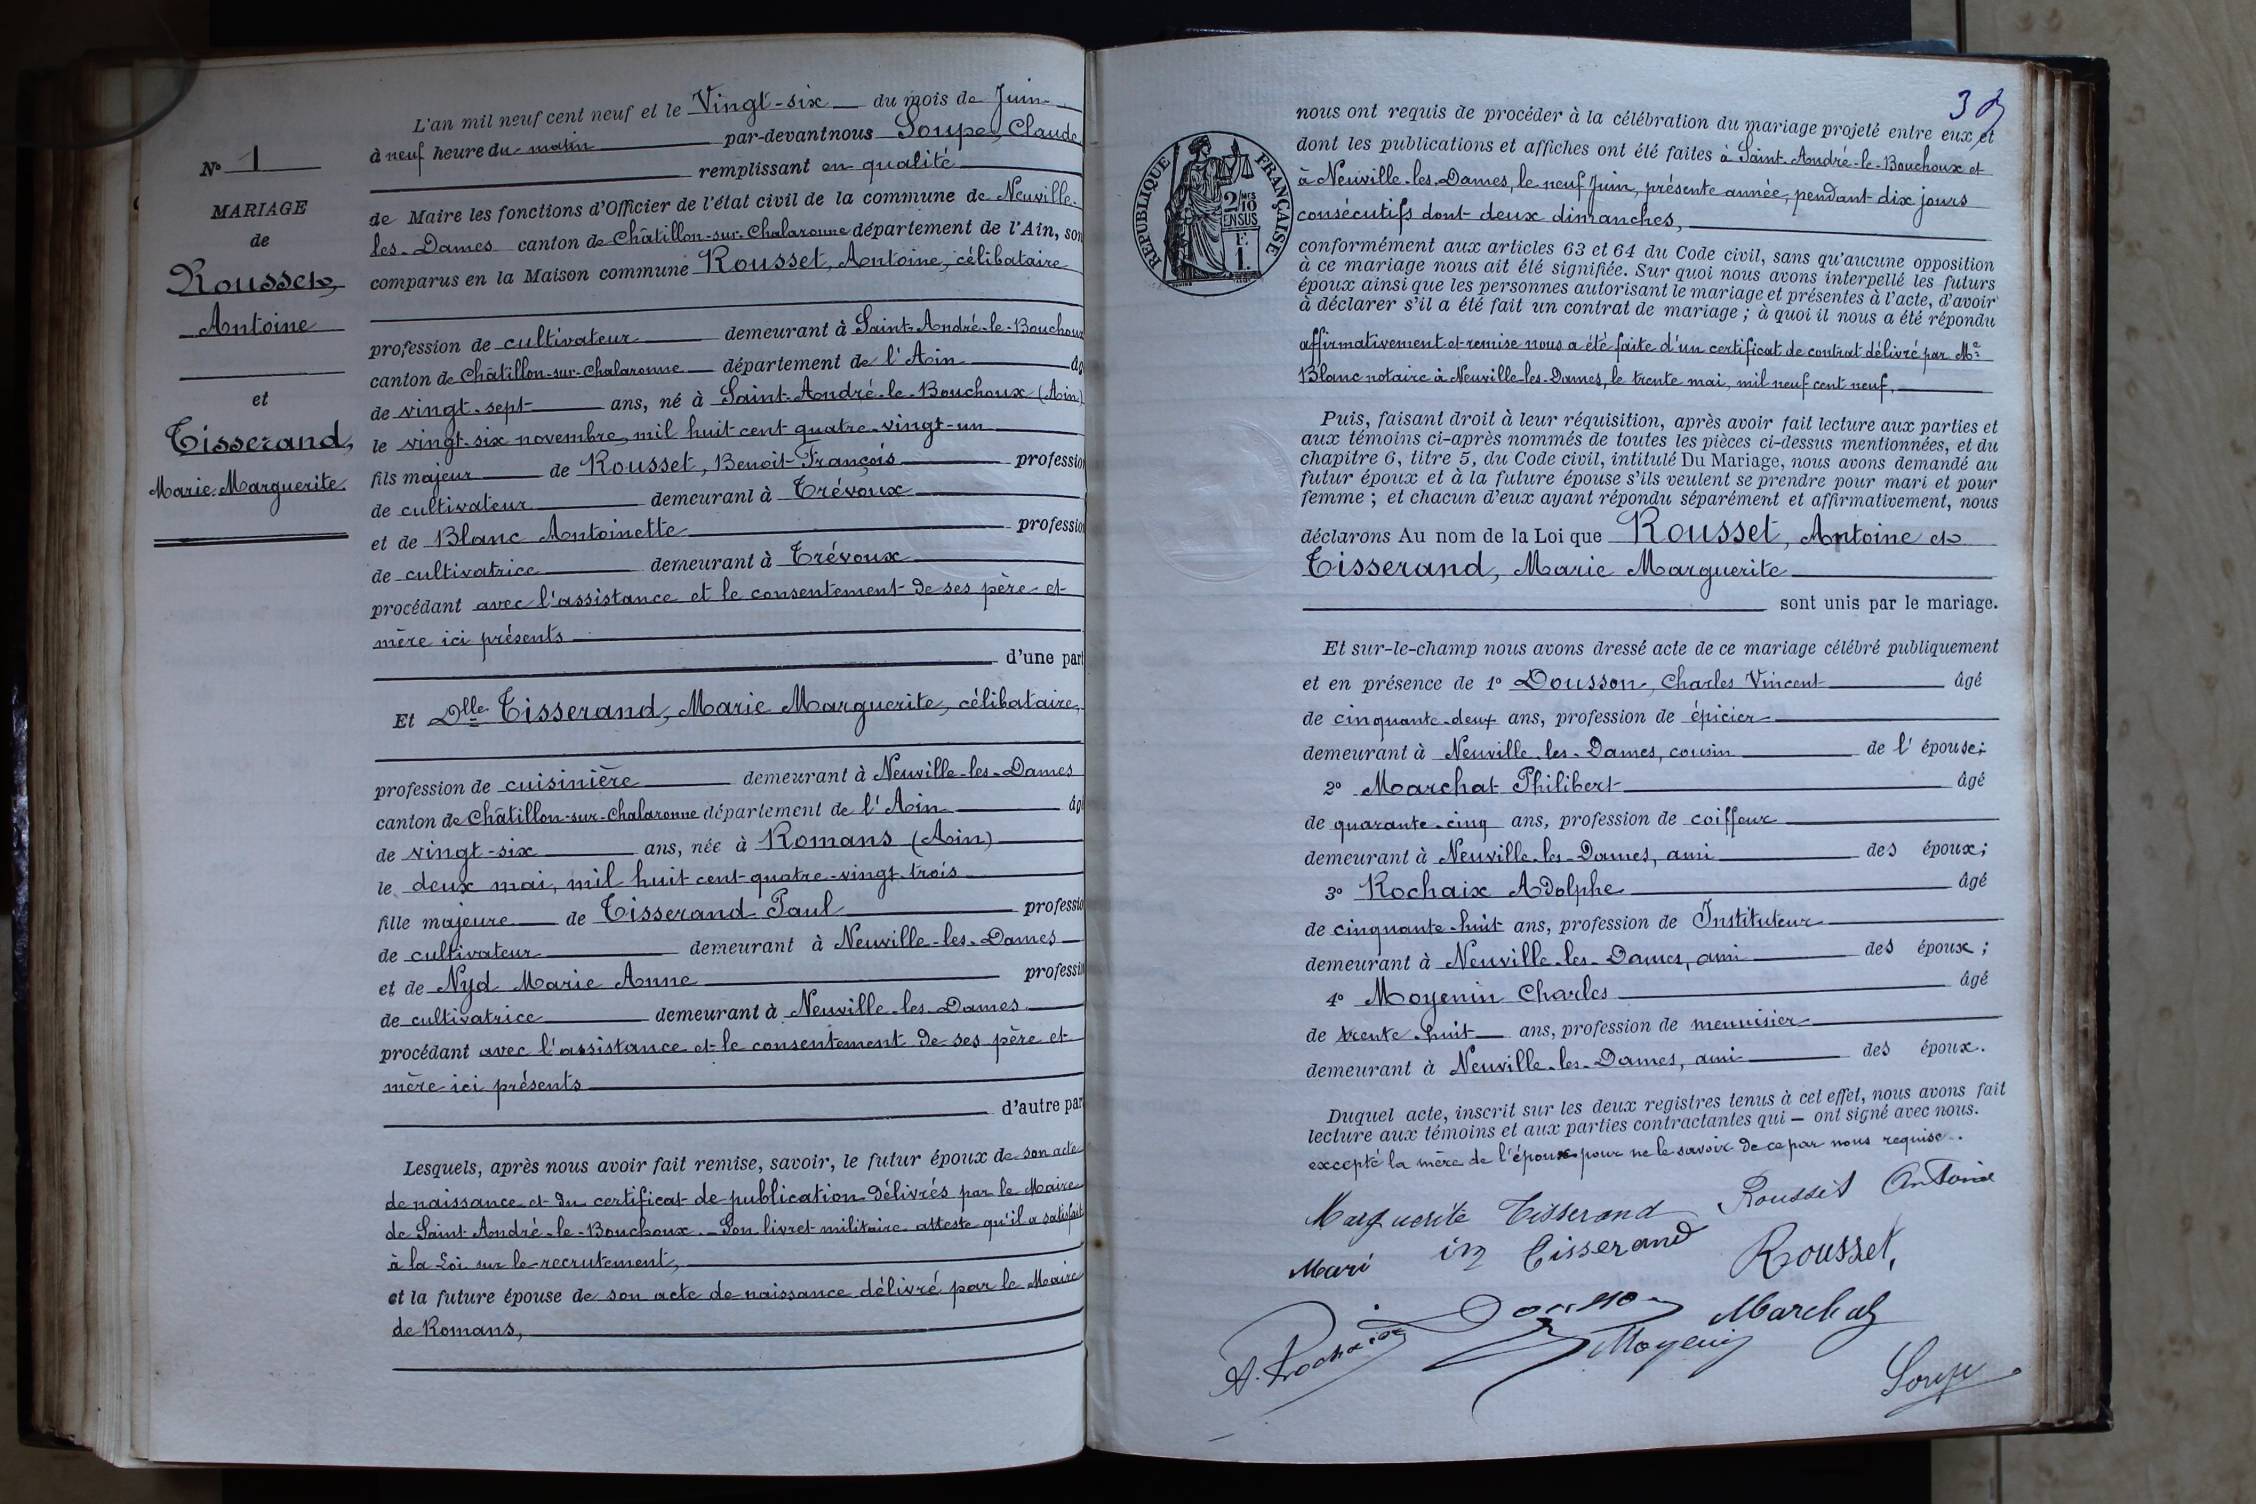 N° 1
MARIAGE
de
Rousset,
Antoine
et
Tisserand,
Marie Marguerite
L'an mil neuf cent neuf et le Vingt-six du mois de Juin
à neuf heure du matin par-devant nous Soupe, Claude
remplissant en qualité
de Maire les fonctions d'Officier de l'état civil de la commune de Neuville-
les-Dames canton de Châtillon-sur-Chalaronne département de l'Ain, son
comparus en la Maison commune Rousset, Antoine, célibataire
profession de cultivateur demeurant à Saint-André-le-Bouchoux
canton de Châtillon-sur-Chalaronne département de l'Ain âg
de vingt-sept ans, né à Saint-André-le-Bouchoux (Ain)
le vingt-six novembre, mil huit cent quatre-vingt-un
fils majeur de Rousset, Benoit-François profession
de cultivateur demeurant à Trévoux
et de Blanc Antoinette profession
de cultivatrice demeurant à Trévoux
procédant avec l'assistance et le consentement de ses père et
mère ici présents
d'une part
Et Dlle Tisserand, Marie Marguerite, célibataire,
profession de cuisinière demeurant à Neuville-les-Dames
canton de Châtillon-sur-Chalaronne département de l'Ain âg
de vingt-six ans, née à Romans (Ain)
le deux mai, mil huit cent quatre-vingt-trois
fille majeure de Tisserand Paul professio
de cultivateur demeurant à Neuville-les-Dames
et de Nyd Marie Anne professi
de cultivatrice demeurant à Neuville-les-Dames
procédant avec l'assistance et le consentement de ses père et
mère ici présents
d'autre par
Lesquels, après nous avoir fait remise, savoir, le futur époux de son acte
de naissance et du certificat de publication délivrés par le Maire
de Saint-André-le-Bouchoux. Son livret militaire atteste qu'il a satisfait
à la Loi sur le recrutement,
et la future épouse de son acte de naissance délivré par le Maire
de Romans,
RÉPUBLIQUE FRANÇAISE
2/10
EN SUS
nous ont requis de procéder à la célébration du mariage projeté entre eux et
dont les publications et affiches ont été faites à Saint-André-le-Bouchoux et
à Neuville-les-Dames, le neuf Juin, présente année, pendant dix jours
consécutifs dont deux dimanches,
conformément aux articles 63 et 64 du Code civil, sans qu'aucune opposition
à ce mariage nous ait été signifiée. Sur quoi nous avons interpellé les futurs
époux ainsi que les personnes autorisant le mariage et présentes à l'acte, d'avoir
à déclarer s'il a été fait un contrat de mariage ; à quoi il nous a été répondu
affirmativement et remise nous a été faite d'un certificat de contrat délivré par Me
Blanc notaire à Neuville-les-Dames, le trente mai, mil neuf cent neuf.
Puis, faisant droit à leur réquisition, après avoir fait lecture aux parties et
aux témoins ci-après nommés de toutes les pièces ci-dessus mentionnées, et du
chapitre 6, titre 5, du Code civil, intitulé Du Mariage, nous avons demandé au
futur époux et à la future épouse s'ils veulent se prendre pour mari et pour
femme ; et chacun d'eux ayant répondu séparément et affirmativement, nous
déclarons Au nom de la Loi que Rousset, Antoine et
Tisserand, Marie Marguerite
sont unis par le mariage.
Et sur-le-champ nous avons dressé acte de ce mariage célébré publiquement
et en présence de 1° Dousson, Charles Vincent âgé
de cinquante-deux ans, profession de épicier
demeurant à Neuville-les-Dames, cousin de l'épouse;
2° Marchat Philibert âgé
de quarante-cinq ans, profession de coiffeur
demeurant à Neuville-les-Dames, ami des époux;
3° Rochaix Adolphe âgé
de cinquante-huit ans, profession de Instituteur
demeurant à Neuville-les-Dames, ami des époux ;
4° Moyenin Charles âgé
de trente-huit ans, profession de menuisier
demeurant à Neuville-les-Dames, ami des époux.
Duquel acte, inscrit sur les deux registres tenus à cet effet, nous avons fait
lecture aux témoins et aux parties contractantes qui – ont signé avec nous.
excepté la mère de l'époux pour ne le savoir de ce par nous requise.
Marguerite Tisserand Rousset Antoine
Mari in Tisserand Rousset,
A. Rochaix Dousson Moyenin Marchat
Soupe